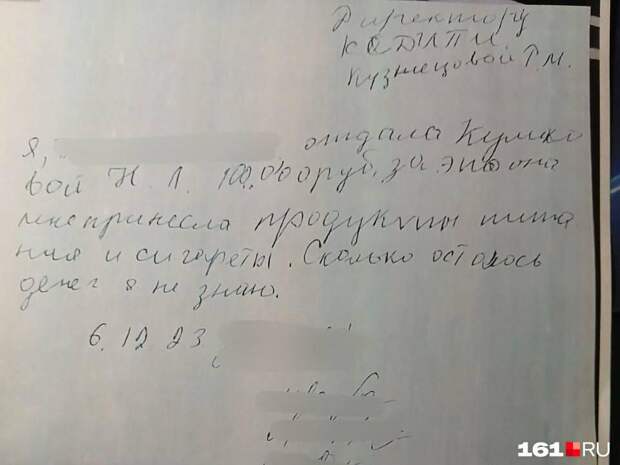 Директору
КСДИПИ
Кузнецовой Р.М.
Я, отдала Кулико
вой Н. Л. 100,000руб, за это она
мне принесла продукты пита
ния и сигареты. Сколько осталось
денег я не знаю.
6.12 23
161.RU